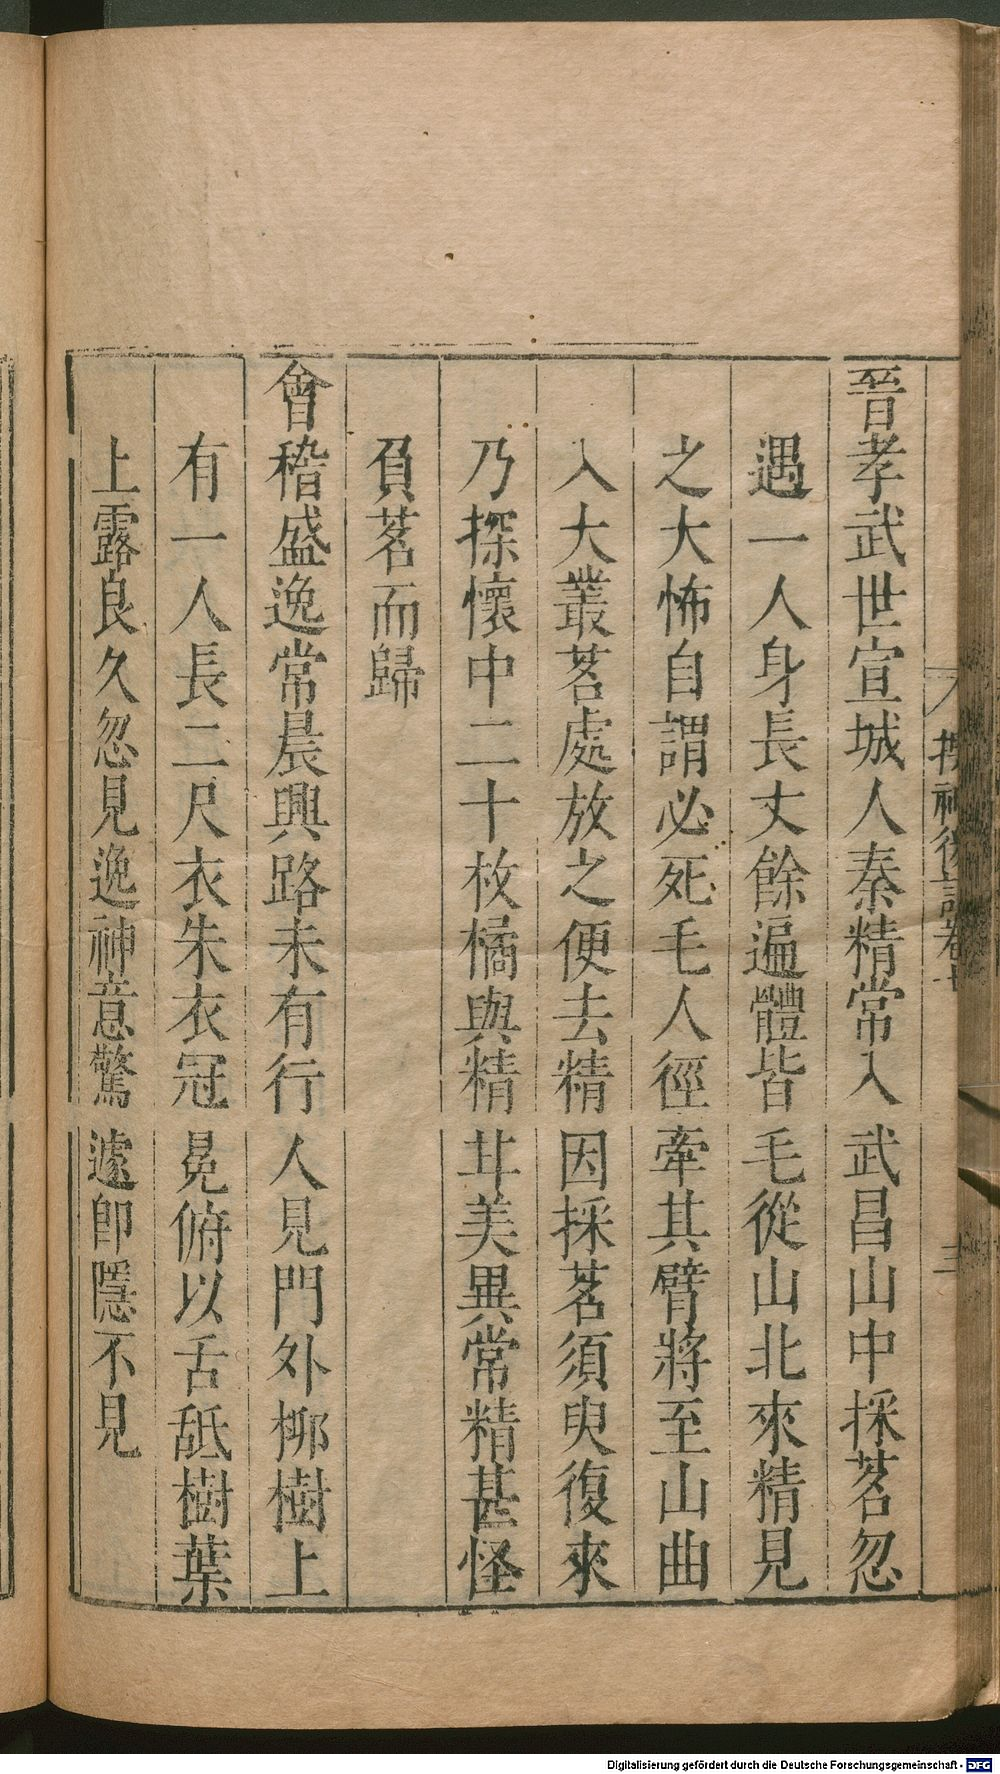 搜神後記卷十
三
晉孝武世宣城人秦精常入武昌山中採茗忽
遇一人身長丈餘遍體皆毛從山北來精見
之大怖自謂必死毛人徑牽其臂將至山曲
入大叢茗處放之便去精因採茗須臾復來
乃探懷中二十枚橘與精甘美異常精甚怪
負茗而歸
會稽盛逸常晨興路未有行人見門外柳樹上
有一人長二尺衣朱衣冠冕俯以舌舐樹葉
上露良久忽見逸神意驚遽即隱不見
Digitalisierung gefördert durch die Deutsche Forschungsgemeinschaft - DFG